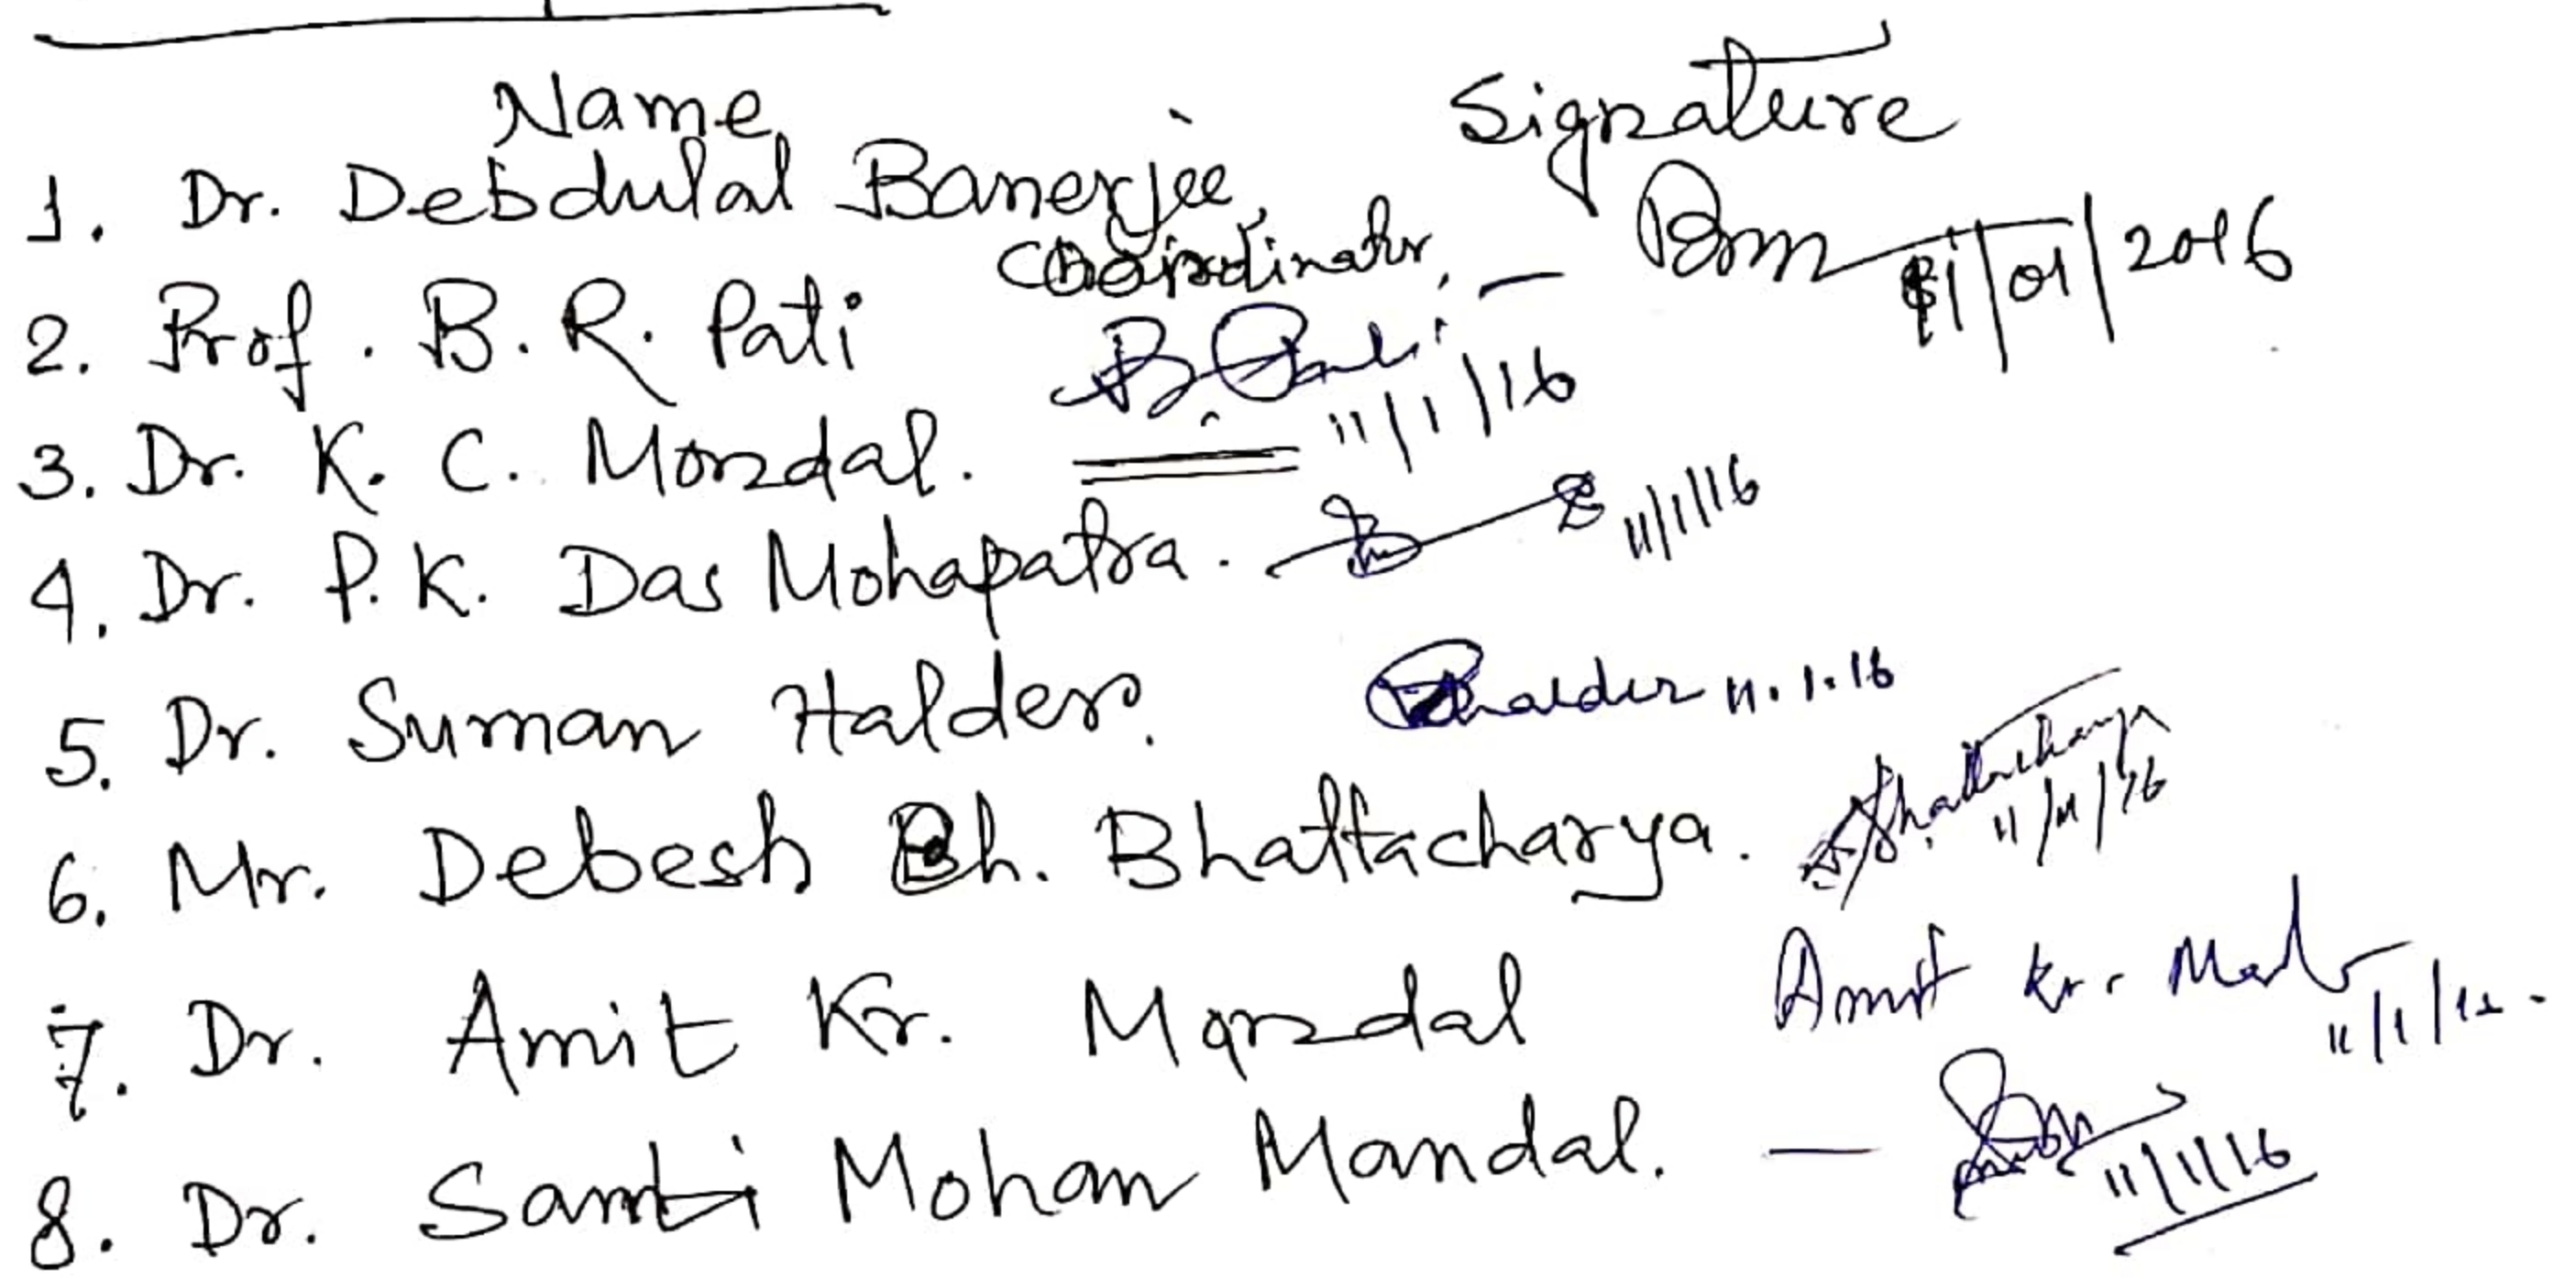 Name Signature
1. Dr. Debdulal Banerjee,
Coordinator, — 11/01/2016
2. Prof. B. R. Pati 11/1/16
3. Dr. K. C. Mondal.
4. Dr. P. K. Das Mohapatra. 11/1/16
5. Dr. Suman Halder. 11.1.16
6. Mr. Debesh Ch. Bhattacharya. Bhattacharya 11/11/16
7. Dr. Amit Kr. Mondal Amit Kr. 11/1/
8. Dr. Santi Mohan Mandal. — 11/1/16